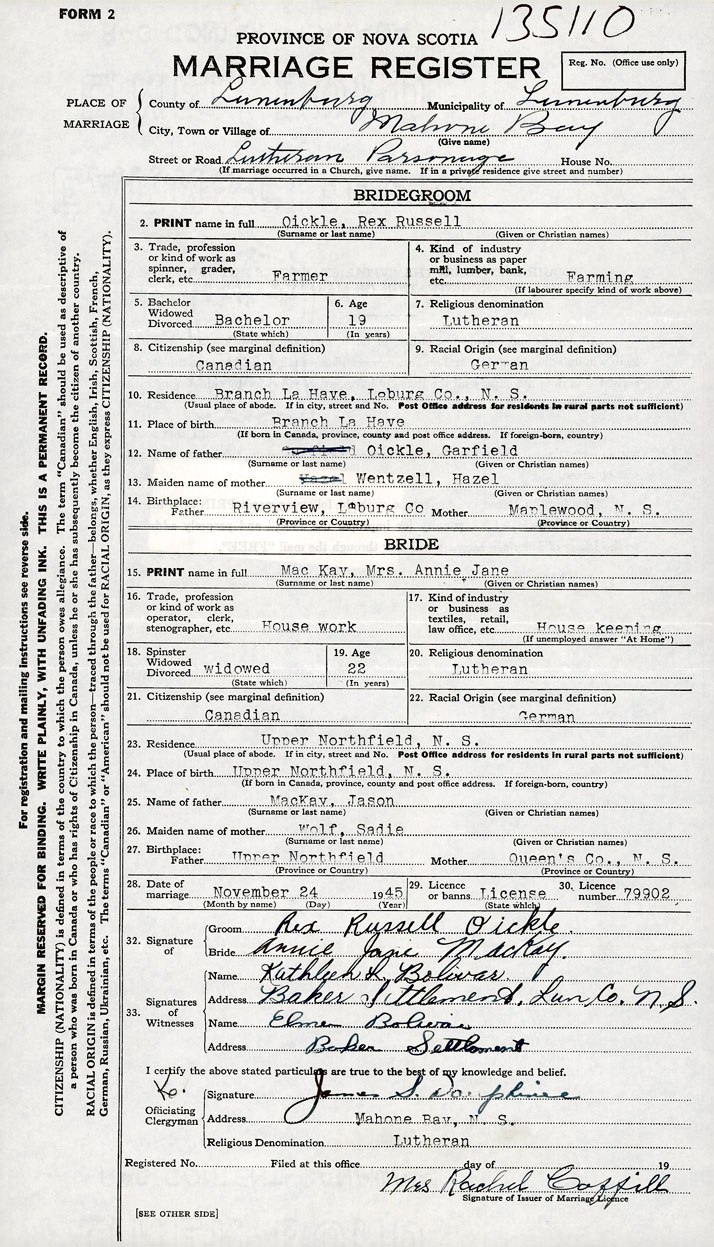 FORM 2
135110
PROVINCE OF NOVA SCOTIA
MARRIAGE REGISTER
Reg. No. (Office use only)
PLACE OF MARRIAGE
County of Lunenburg Municipality of Lunenburg
City, Town or Village of Mahone Bay
(Give name)
Street or Road Lutheran Parsonage House No.
(If marriage occurred in a Church, give name. If in a private residence give street and number)
BRIDEGROOM
2. PRINT name in full Oickle, Rex Russell
(Surname or last name) (Given or Christian names)
3. Trade, profession or kind of work as spinner, grader, clerk, etc. Farmer
4. Kind of industry or business as paper mill, lumber, bank, etc. Farming
(If labourer specify kind of work above)
5. Bachelor Widowed Divorced Bachelor
(State which)
6. Age 19
(In years)
7. Religious denomination Lutheran
8. Citizenship (see marginal definition) Canadian
9. Racial Origin (see marginal definition) German
10. Residence Branch La Have, Leburg Co., N. S.
(Usual place of abode. If in city, street and No. Post Office address for residents in rural parts not sufficient)
11. Place of birth Branch La Have
(If born in Canada, province, county and post office address. If foreign-born, country)
12. Name of father Oickle, Garfield
(Surname or last name) (Given or Christian names)
13. Maiden name of mother Hazel Wentzell, Hazel
(Surname or last name) (Given or Christian names)
14. Birthplace: Father Riverview, Leburg Co Mother Maplewood, N. S.
(Province or Country) (Province or Country)
BRIDE
15. PRINT name in full Mac Kay, Mrs. Annie Jane
(Surname or last name) (Given or Christian names)
16. Trade, profession or kind of work as operator, clerk, stenographer, etc House work
17. Kind of industry or business as textiles, retail, law office, etc. House keeping
(If unemployed answer "At Home")
18. Spinster Widowed Divorced widowed
(State which)
19. Age 22
(In years)
20. Religious denomination Lutheran
21. Citizenship (see marginal definition) Canadian
22. Racial Origin (see marginal definition) German
23. Residence Upper Northfield, N. S.
(Usual place of abode. If in city, street and No. Post Office address for residents in rural parts not sufficient)
24. Place of birth Upper Northfield, N. S.
(If born in Canada, province, county and post office address. If foreign-born, country)
25. Name of father MacKay, Jason
(Surname or last name) (Given or Christian names)
26. Maiden name of mother Wolf, Sadie
(Surname or last name) (Given or Christian names)
27. Birthplace: Father Upper Northfield Mother Queen's Co., N. S.
(Province or Country) (Province or Country)
28. Date of marriage November 24 1945
(Month by name) (Day) (Year)
29. Licence or banns License
(State which)
30. Licence number 79902
32. Signature of
Groom Rex Russell Oickle
Bride Annie Jane MacKay.
33. Signatures of Witnesses
Name Kathleen L. Bolivar
Address Baker Settlement, Lun Co. N.S.
Name Elmer Bolivar
Address Baker Settlement
I certify the above stated particulars are true to the best of my knowledge and belief.
Officiating Clergyman
Signature James S. Dauphinee
Address Mahone Bay, N. S.
Religious Denomination Lutheran
Registered No. Filed at this office day of 19
Mrs Rachel Coffill
Signature of Issuer of Marriage Licence
[SEE OTHER SIDE]
For registration and mailing instructions see reverse side.
MARGIN RESERVED FOR BINDING. WRITE PLAINLY, WITH UNFADING INK. THIS IS A PERMANENT RECORD.
CITIZENSHIP (NATIONALITY) is defined in terms of the country to which the person owes allegiance. The term "Canadian" should be used as descriptive of
a person who was born in Canada or who has rights of Citizenship in Canada, unless he or she has subsequently become the citizen of another country.
RACIAL ORIGIN is defined in terms of the people or race to which the person—traced through the father—belongs, whether English, Irish, Scottish, French,
German, Russian, Ukrainian, etc. The terms "Canadian" or "American" should not be used for RACIAL ORIGIN, as they express CITIZENSHIP (NATIONALITY).